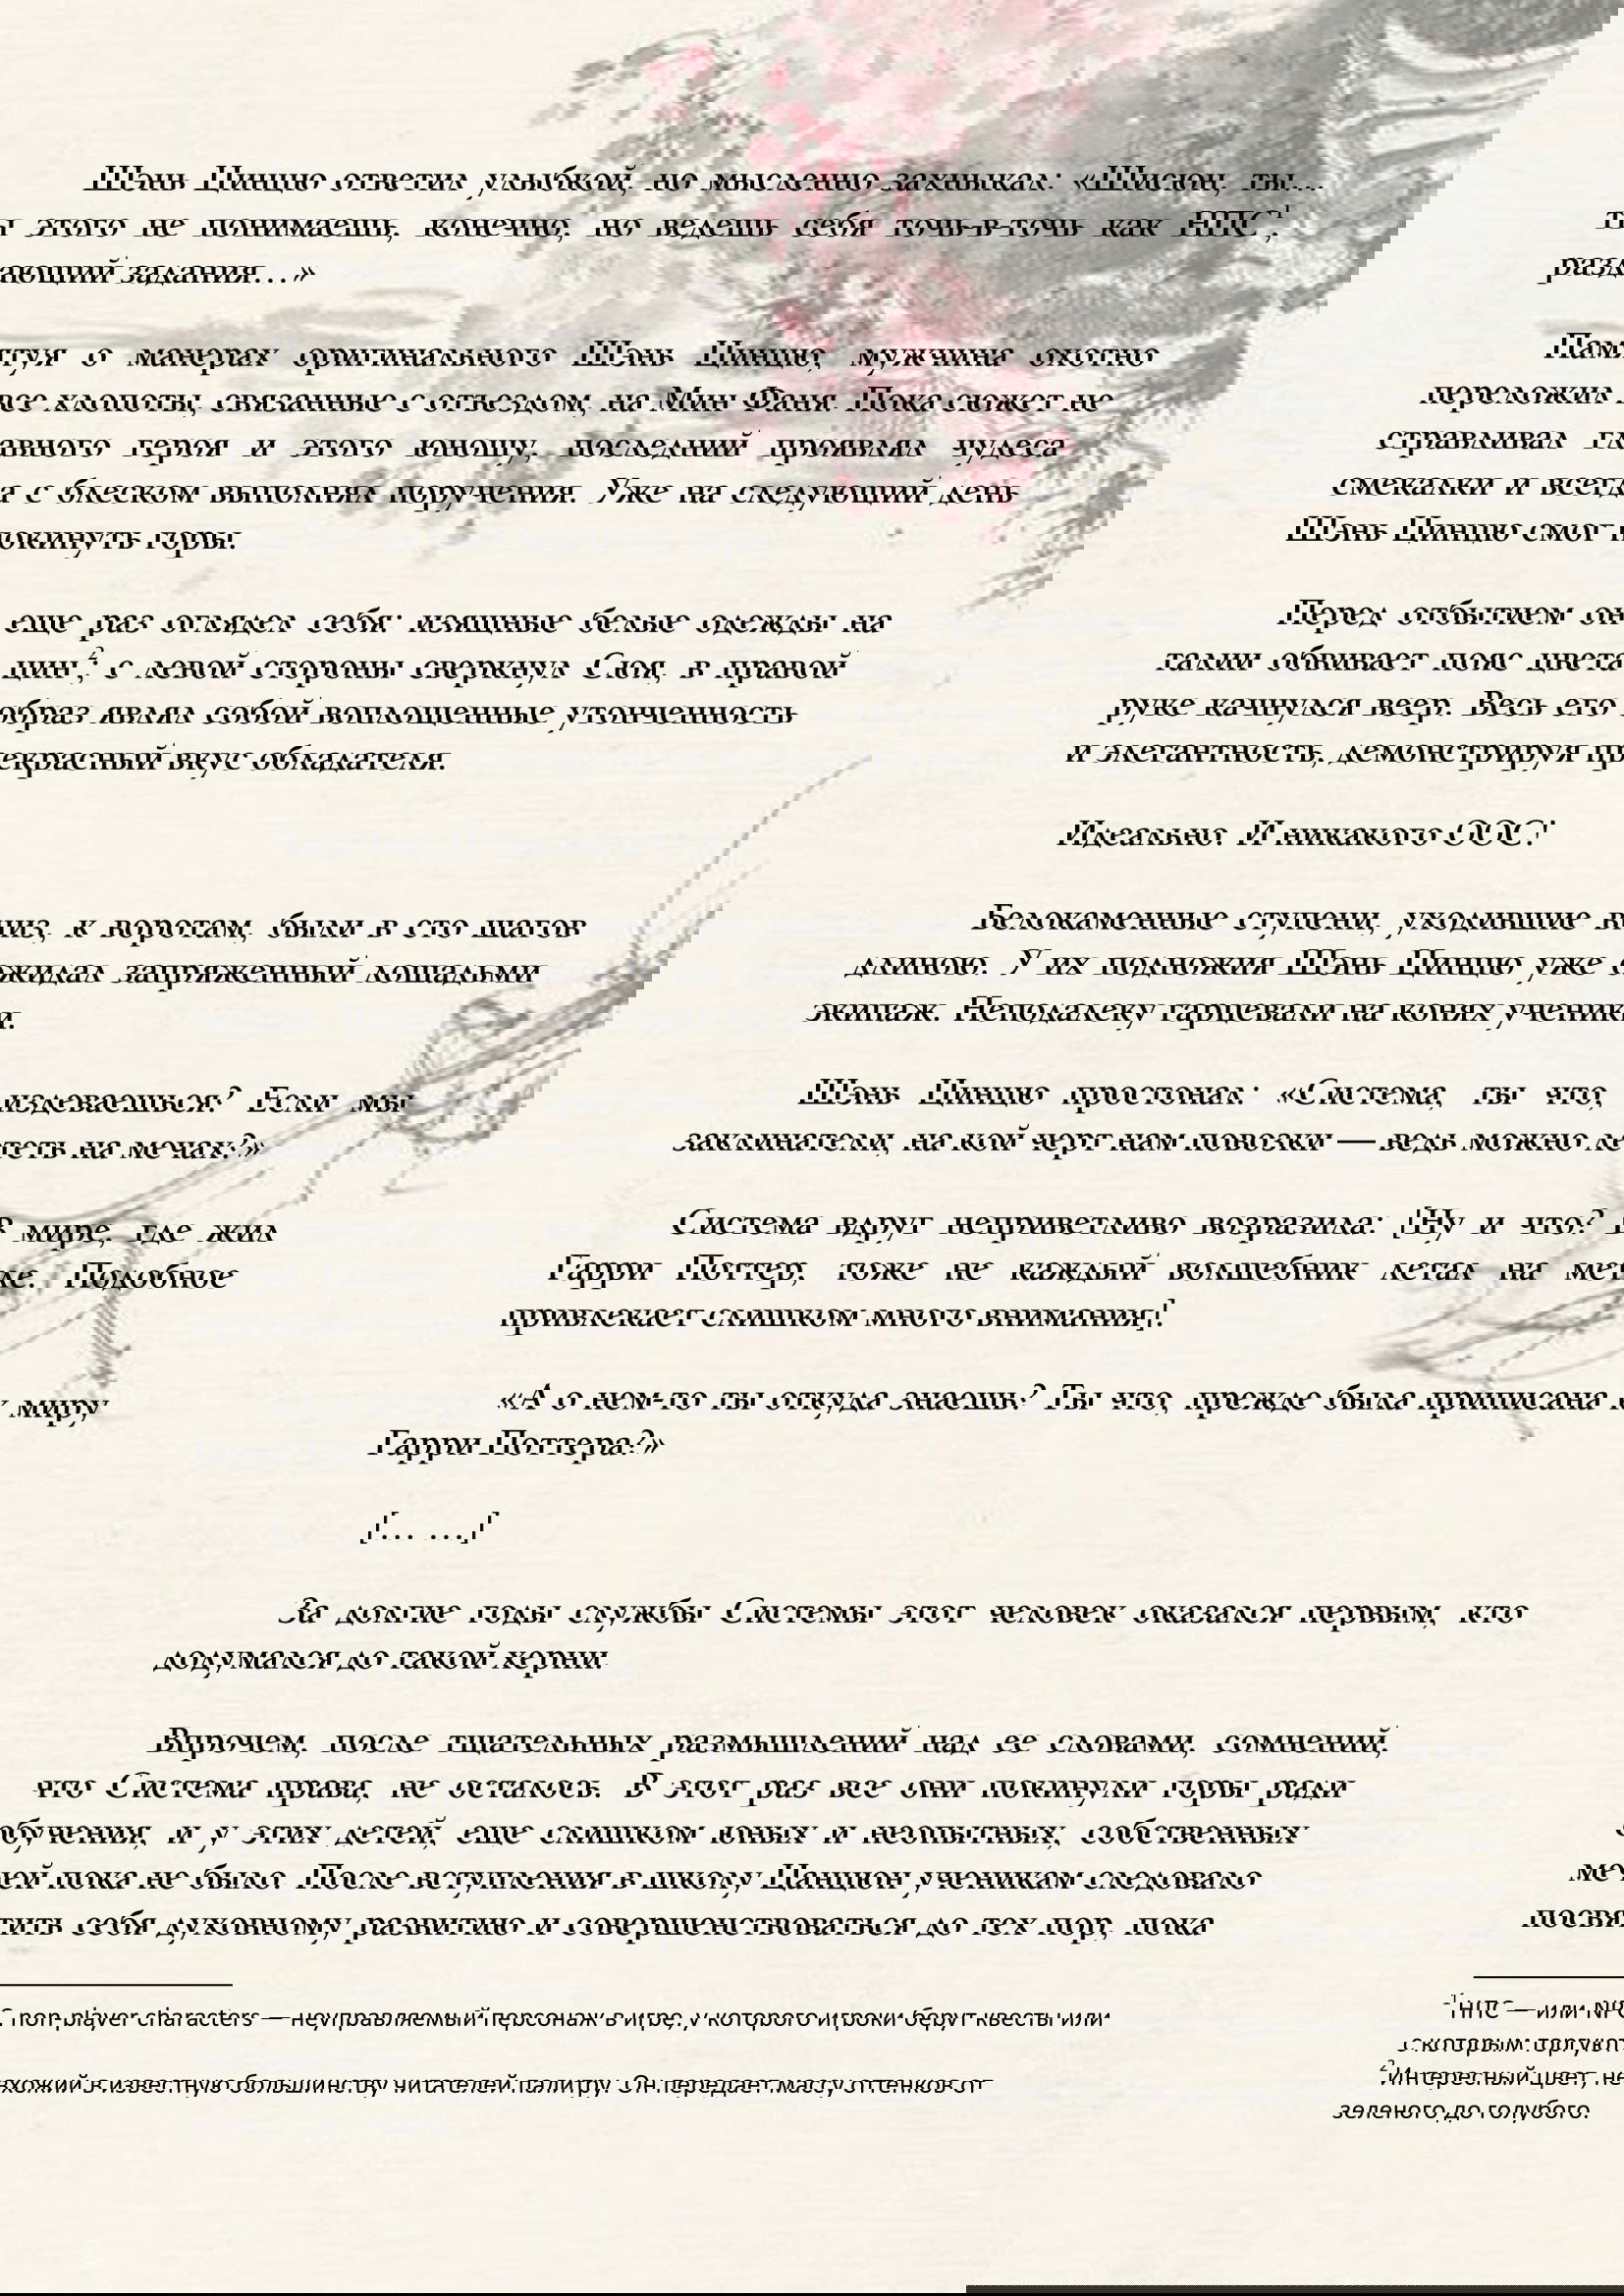 Шэнь Цинцю ответил улыбкой, но мысленно захныкал: «Шисюн, ты…
Ты этого не понимаешь, конечно, но ведешь себя точь-в-точь как НПС¹,
раздающий задания…»
Памятуя о манерах оригинального Шэнь Цинцю, мужчина охотно
переложил все хлопоты, связанные с отъездом, на Мин Фаня. Пока сюжет не
стравливал главного героя и этого юношу, последний проявлял чудеса
смекалки и всегда с блеском выполнял поручения. Уже на следующий день
Шэнь Цинцю смог покинуть горы.
Перед отбытием он еще раз оглядел себя: изящные белые одежды на
талии обвивает пояс цвета цин,² с левой стороны сверкнул Сюя, в правой
руке качнулся веер. Весь его образ являл собой воплощенные утонченность
и элегантность, демонстрируя прекрасный вкус обладателя.
Идеально. И никакого ООС!
Белокаменные ступени, уходившие вниз, к воротам, были в сто шагов
длиною. У их подножия Шэнь Цинцю уже ожидал запряженный лошадьми
экипаж. Неподалеку гарцевали на конях ученики.
Шэнь Цинцю простонал: «Система, ты что, издеваешься? Если мы
заклинатели, на кой черт нам повозки — ведь можно лететь на мечах?»
Система вдруг неприветливо возразила: [Ну и что? В мире, где жил
Гарри Поттер, тоже не каждый волшебник летал на метле. Подобное
привлекает слишком много внимания].
«А о нем-то ты откуда знаешь? Ты что, прежде была приписана к миру
Гарри Поттера?»
[… …]
За долгие годы службы Системы этот человек оказался первым, кто
додумался до такой херни.
Впрочем, после тщательных размышлений над ее словами, сомнений,
что Система права, не осталось. В этот раз все они покинули горы ради
обучения, и у этих детей, еще слишком юных и неопытных, собственных
мечей пока не было. После вступления в школу Цанцюн ученикам следовало
посвятить себя духовному развитию и совершенствоваться до тех пор, пока
¹НПС — или NPC non-player characters — неуправляемый персонаж в игре, у которого игроки берут квесты или
с которым торгуют.
²Интересный цвет, не вхожий в известную большинству читателей палитру. Он передает массу оттенков от
зеленого до голубого.